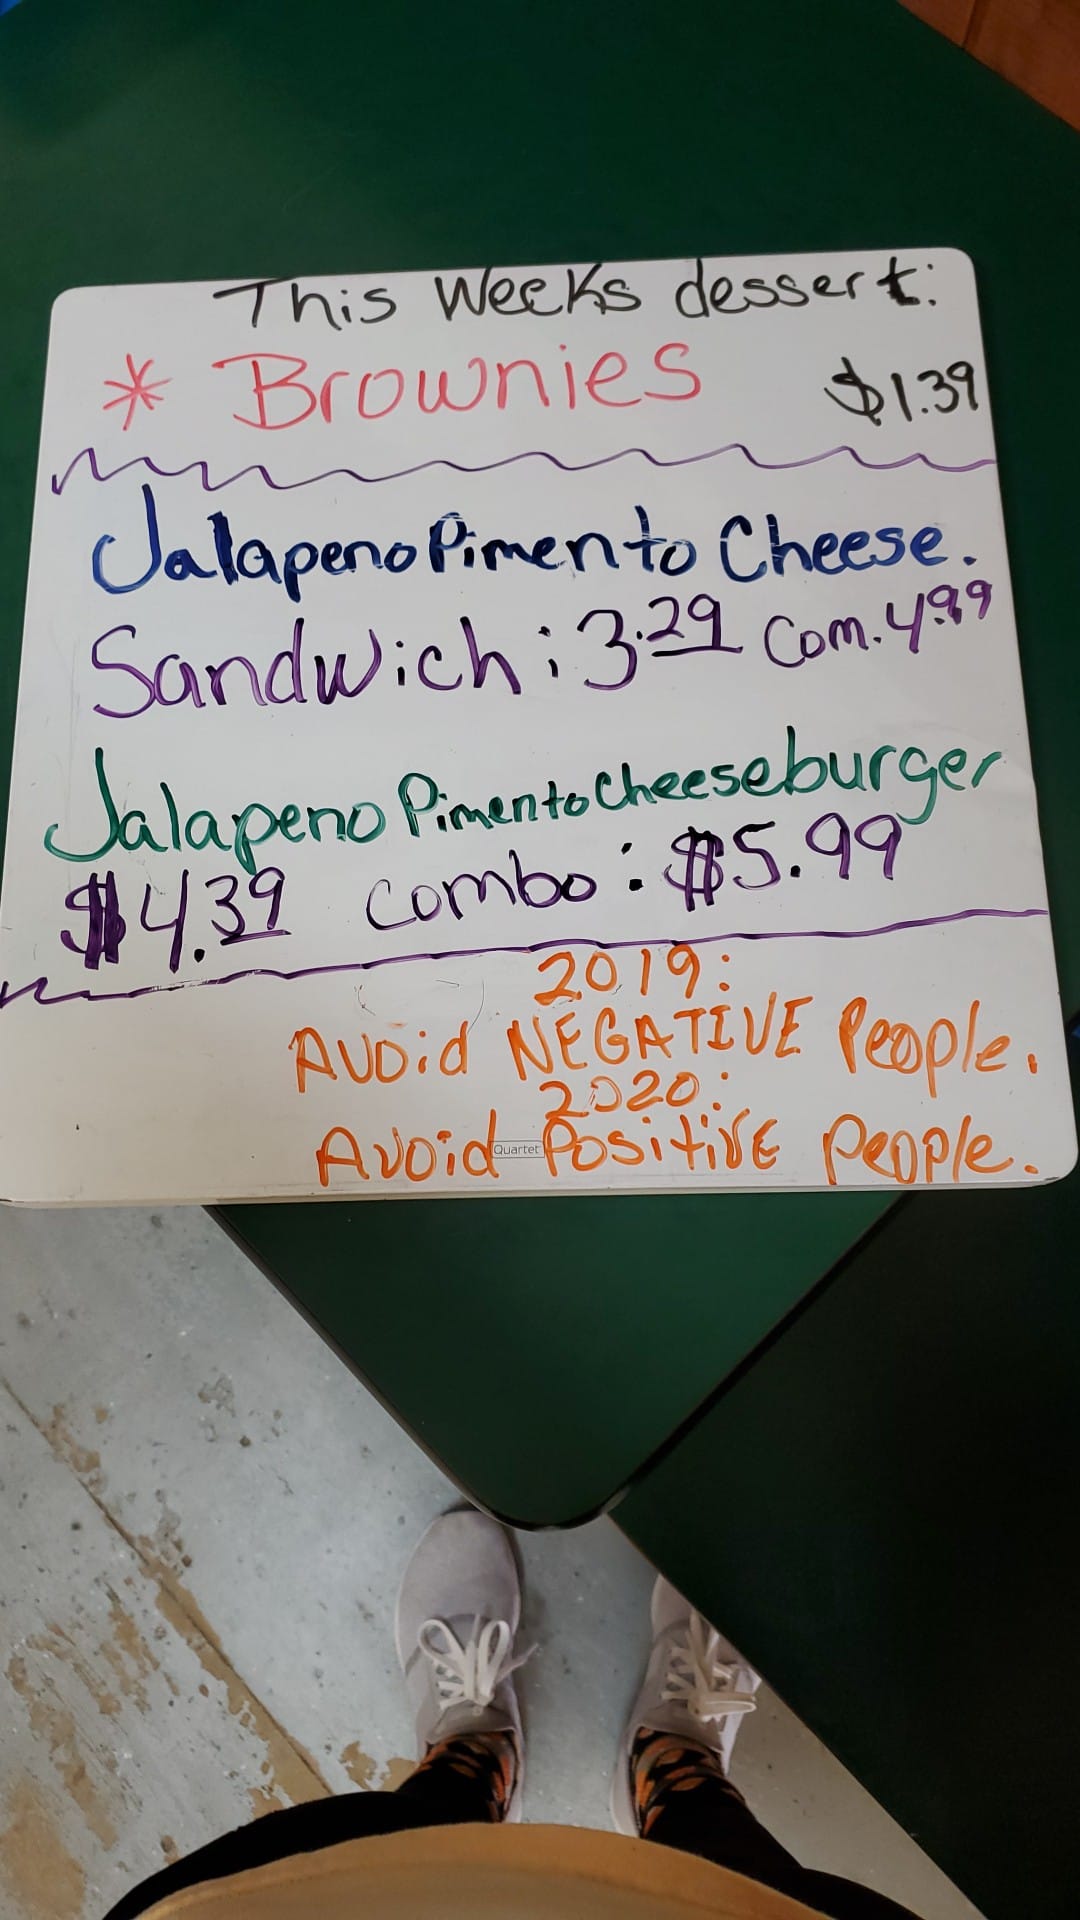 This Weeks dessert:
* Brownies $1.39
Jalapeno Pimento Cheese.
Sandwich: 3.29 Com. 4.99
Jalapeno Pimento Cheeseburger
$4.39 combo: $5.99
2019:
Avoid NEGATIVE People.
2020:
Avoid PositivE People.
Quartet